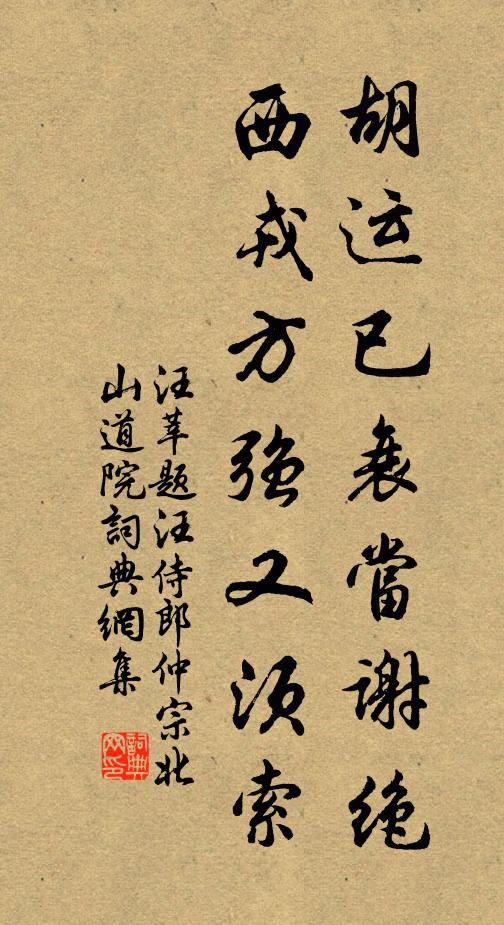 胡运已衰當谢绝
西戎方強又须索
汪莘题汪侍郎仲宗北
山道院詞典網集
詞典网印